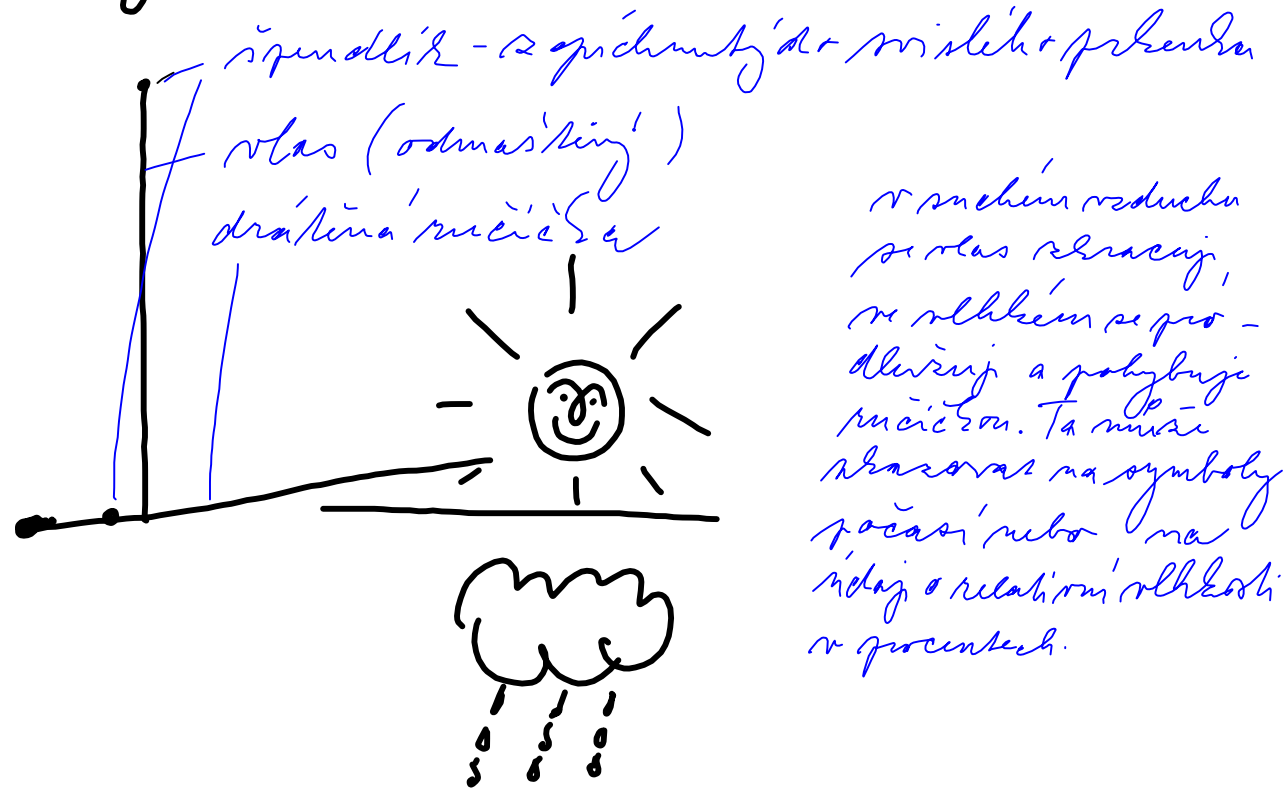 špendlík - zapíchnutý do svislého prkénka
vlas (odmaštěný)
drátěná ručička
v suchém vzduchu
se vlas zkracuje,
ve vlhkém se pro-
dlužuje a pohybuje
ručičkou. Ta může
ukazovat na symboly
počasí nebo na
údaj o relativní vlhkosti
v procentech.